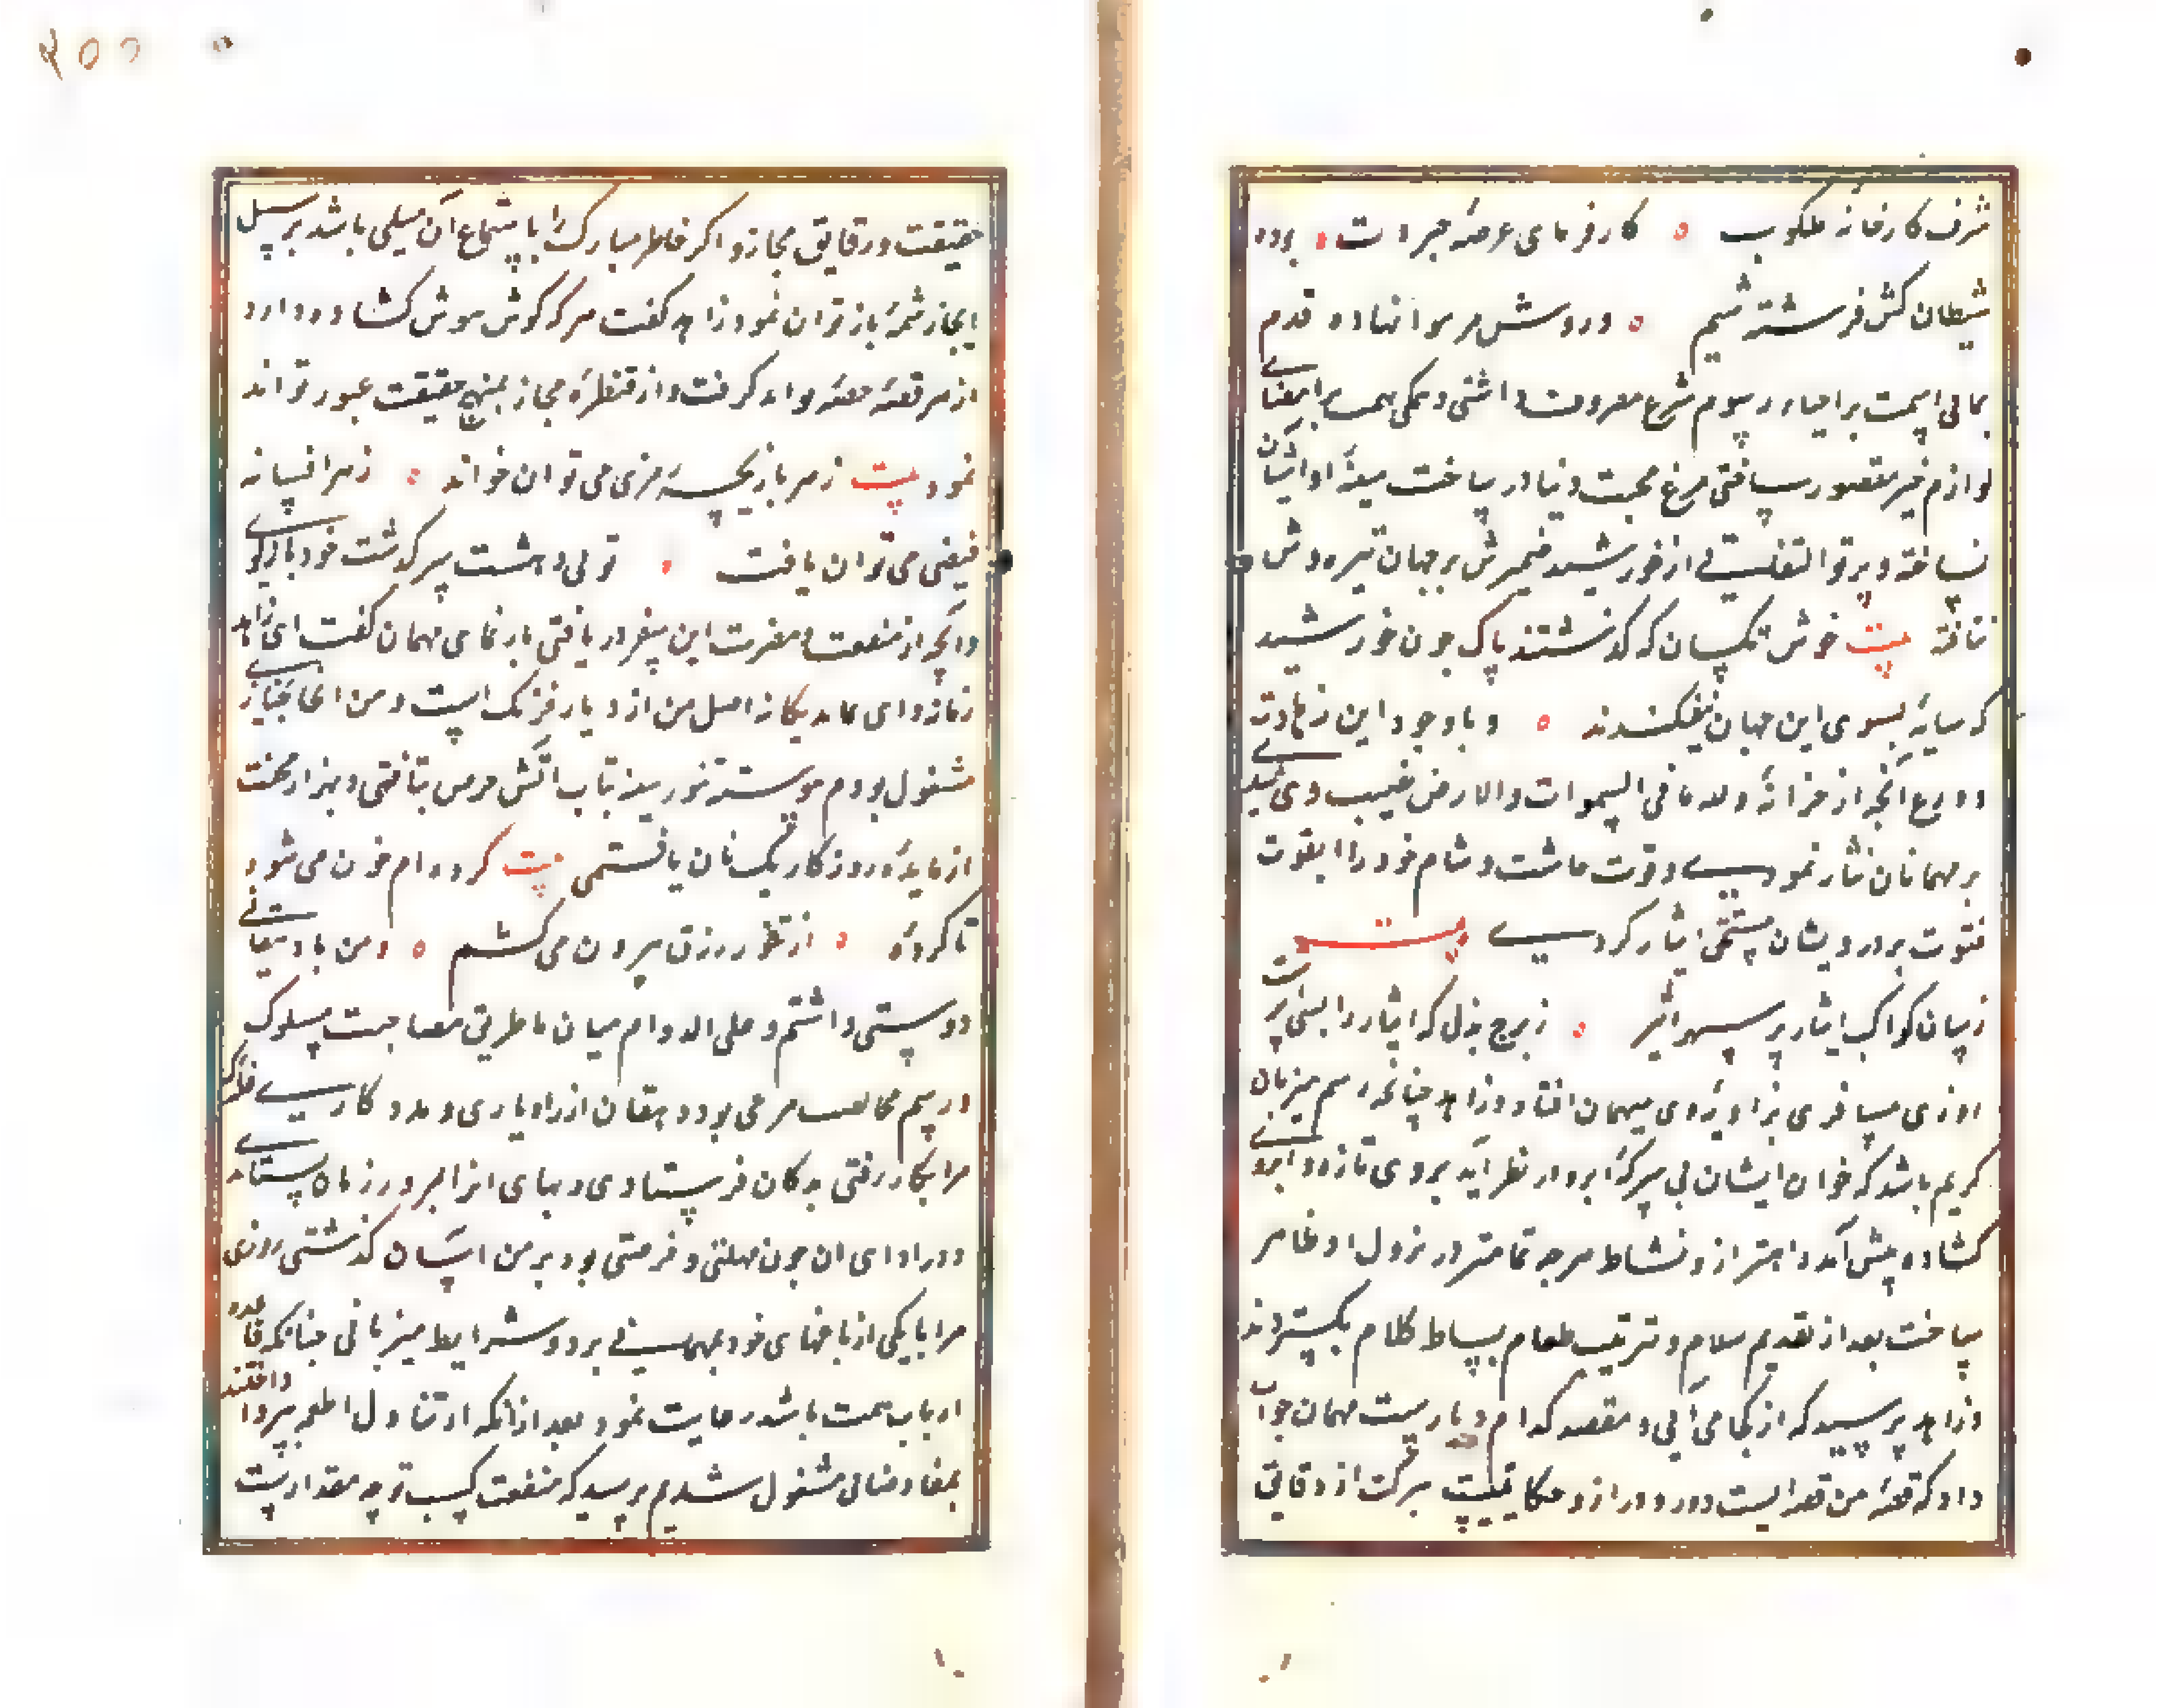 شرف کارخانهٔ ملکوت ه کارفرمای عرصهٔ جبروت بوده
شیطان کش فرشته شیم ه درروش مر سوا نهاده قدم
بمالی همت بر احیاء رسوم شرع مصروف داشتی و همکی همت بر امضای
لوازم خیر مقصور ساختی مرغ محبت دنیا در ساخت سینهٔ او آشیان
نساخته و پرتو التفاتی از خورشید ضمیرش بر جهان تیره وش
نتافته بیت خوش آنکسان که گذشتند پاک چون خورشید
که سایهٔ بسوی این جهان نیفکندند ه و با وجود این زهادت
و ورع آنچه از خزانهٔ ولله ما فی السموات والارض نصیب وی شدی
بر مهمانان نثار نمودی و قوت چاشت و شام خود را بقوت
فتوت بر درویشان مستحق ایثار کردی بیت
زسان کواکب ایثار بر سپهر اثیر ه ز برج بذل که ایثار را
روزی مسافری بزاویهٔ وی میهمان افتاد و زاهد چنانچه رسم میزبان
کریم باشد که خوان ایشان بی سرکهٔ ابرو در نظر آید بروی تازه و ابروی
گشاده پیش آمد و اهتزاز و نشاط هر چه تمامتر در نزول او ظاهر
ساخت بعد از تقدیم سلام و ترتیب طعام بساط کلام بگستردند
و زاهد پرسید که از کجا می آئی و مقصد کدام دیارست مهمان جواب
داد که قصهٔ من قصه ایست دور و دراز و حکایتیست مرکب از دقایق
حقیقت و رقایق مجاز و اگر خاطر مبارک را باستماع آن میلی باشد بر سبیل
ایجاز شمهٔ باز توان نمود زاهد گفت هر که گوش هوش گشاده دارد
از هر قصهٔ حصهٔ تواند گرفت و از قنطرهٔ مجاز بمنهج حقیقت عبور تواند
نمود بیت ز هر بازیچهٔ رمزی می توان خواند ه ز هر افسانه
فیضی می توان یافت ه تو بی دهشت سرگذشت خود بازگوی
و آنچه از منفعت و مضرت این سفر دریافتی بازنمای مهمان گفت ای زاهد
زمانه و ای عابد یگانه اصل من از دیار فرنگ است و من آنجا بخبازی
مشغول بودم پیوسته تنور سینه بتاب آتش حرص بتافتی و بهزار محنت
از مایدهٔ روزگار یک نان یافتمی بیت گرده ام خون می شود
تا گردهٔ ه از تنور رزق بیرون می کشم ه و من با دهقانی
دوستی داشتم و علی الدوام میان ما طریق مصاحبت مسلوک
و رسم مخالصت مرعی بود و دهقان از راه یاری و مددکاری غلّه
مرا بکار رفتی بدکان فرستادی و بهای آنرا بمرور زمان ستاندی
و در ادای آن چون مهلتی و فرصتی بود بر من آسان گذشتی روزی
مرا بیکی از باغهای خود بمهمانی برد و شرایط میزبانی چنانکه قاعده
ارباب همت باشد رعایت نمود بعد از آنکه از تناول اطعمه پرداختند
بمفاوضاتی مشغول شدیم پرسید که منفعت کسب تو چه مقدارست